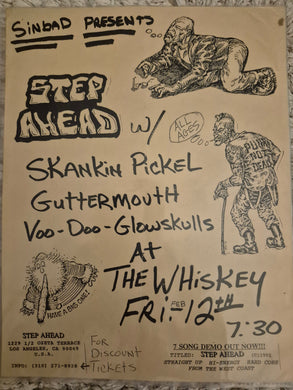 SINBAD PRESENTS
STEP
AHEAD
W/
ALL
AGES
SKANKIN PICKEL
GUTTERMOUTH
VOO-DOO-GLOWSKULLS
PUNK
NOT
DEAD
AT
THE WHISKEY
FRI. FEB 12TH
7:30
HAVE A RAD ONE!
STEP AHEAD
1229 1/2 GENTA TERRACE
LOS ANGELES, CA 90069
U.S.A.
INFO: (310) 271-8928
FOR
DISCOUNT
TICKETS
7 SONG DEMO OUT NOW!!!
TITLED: STEP AHEAD (C)1992
STRAIGHT UP HI-ENERGY HARD CORE
FROM THE WEST COAST